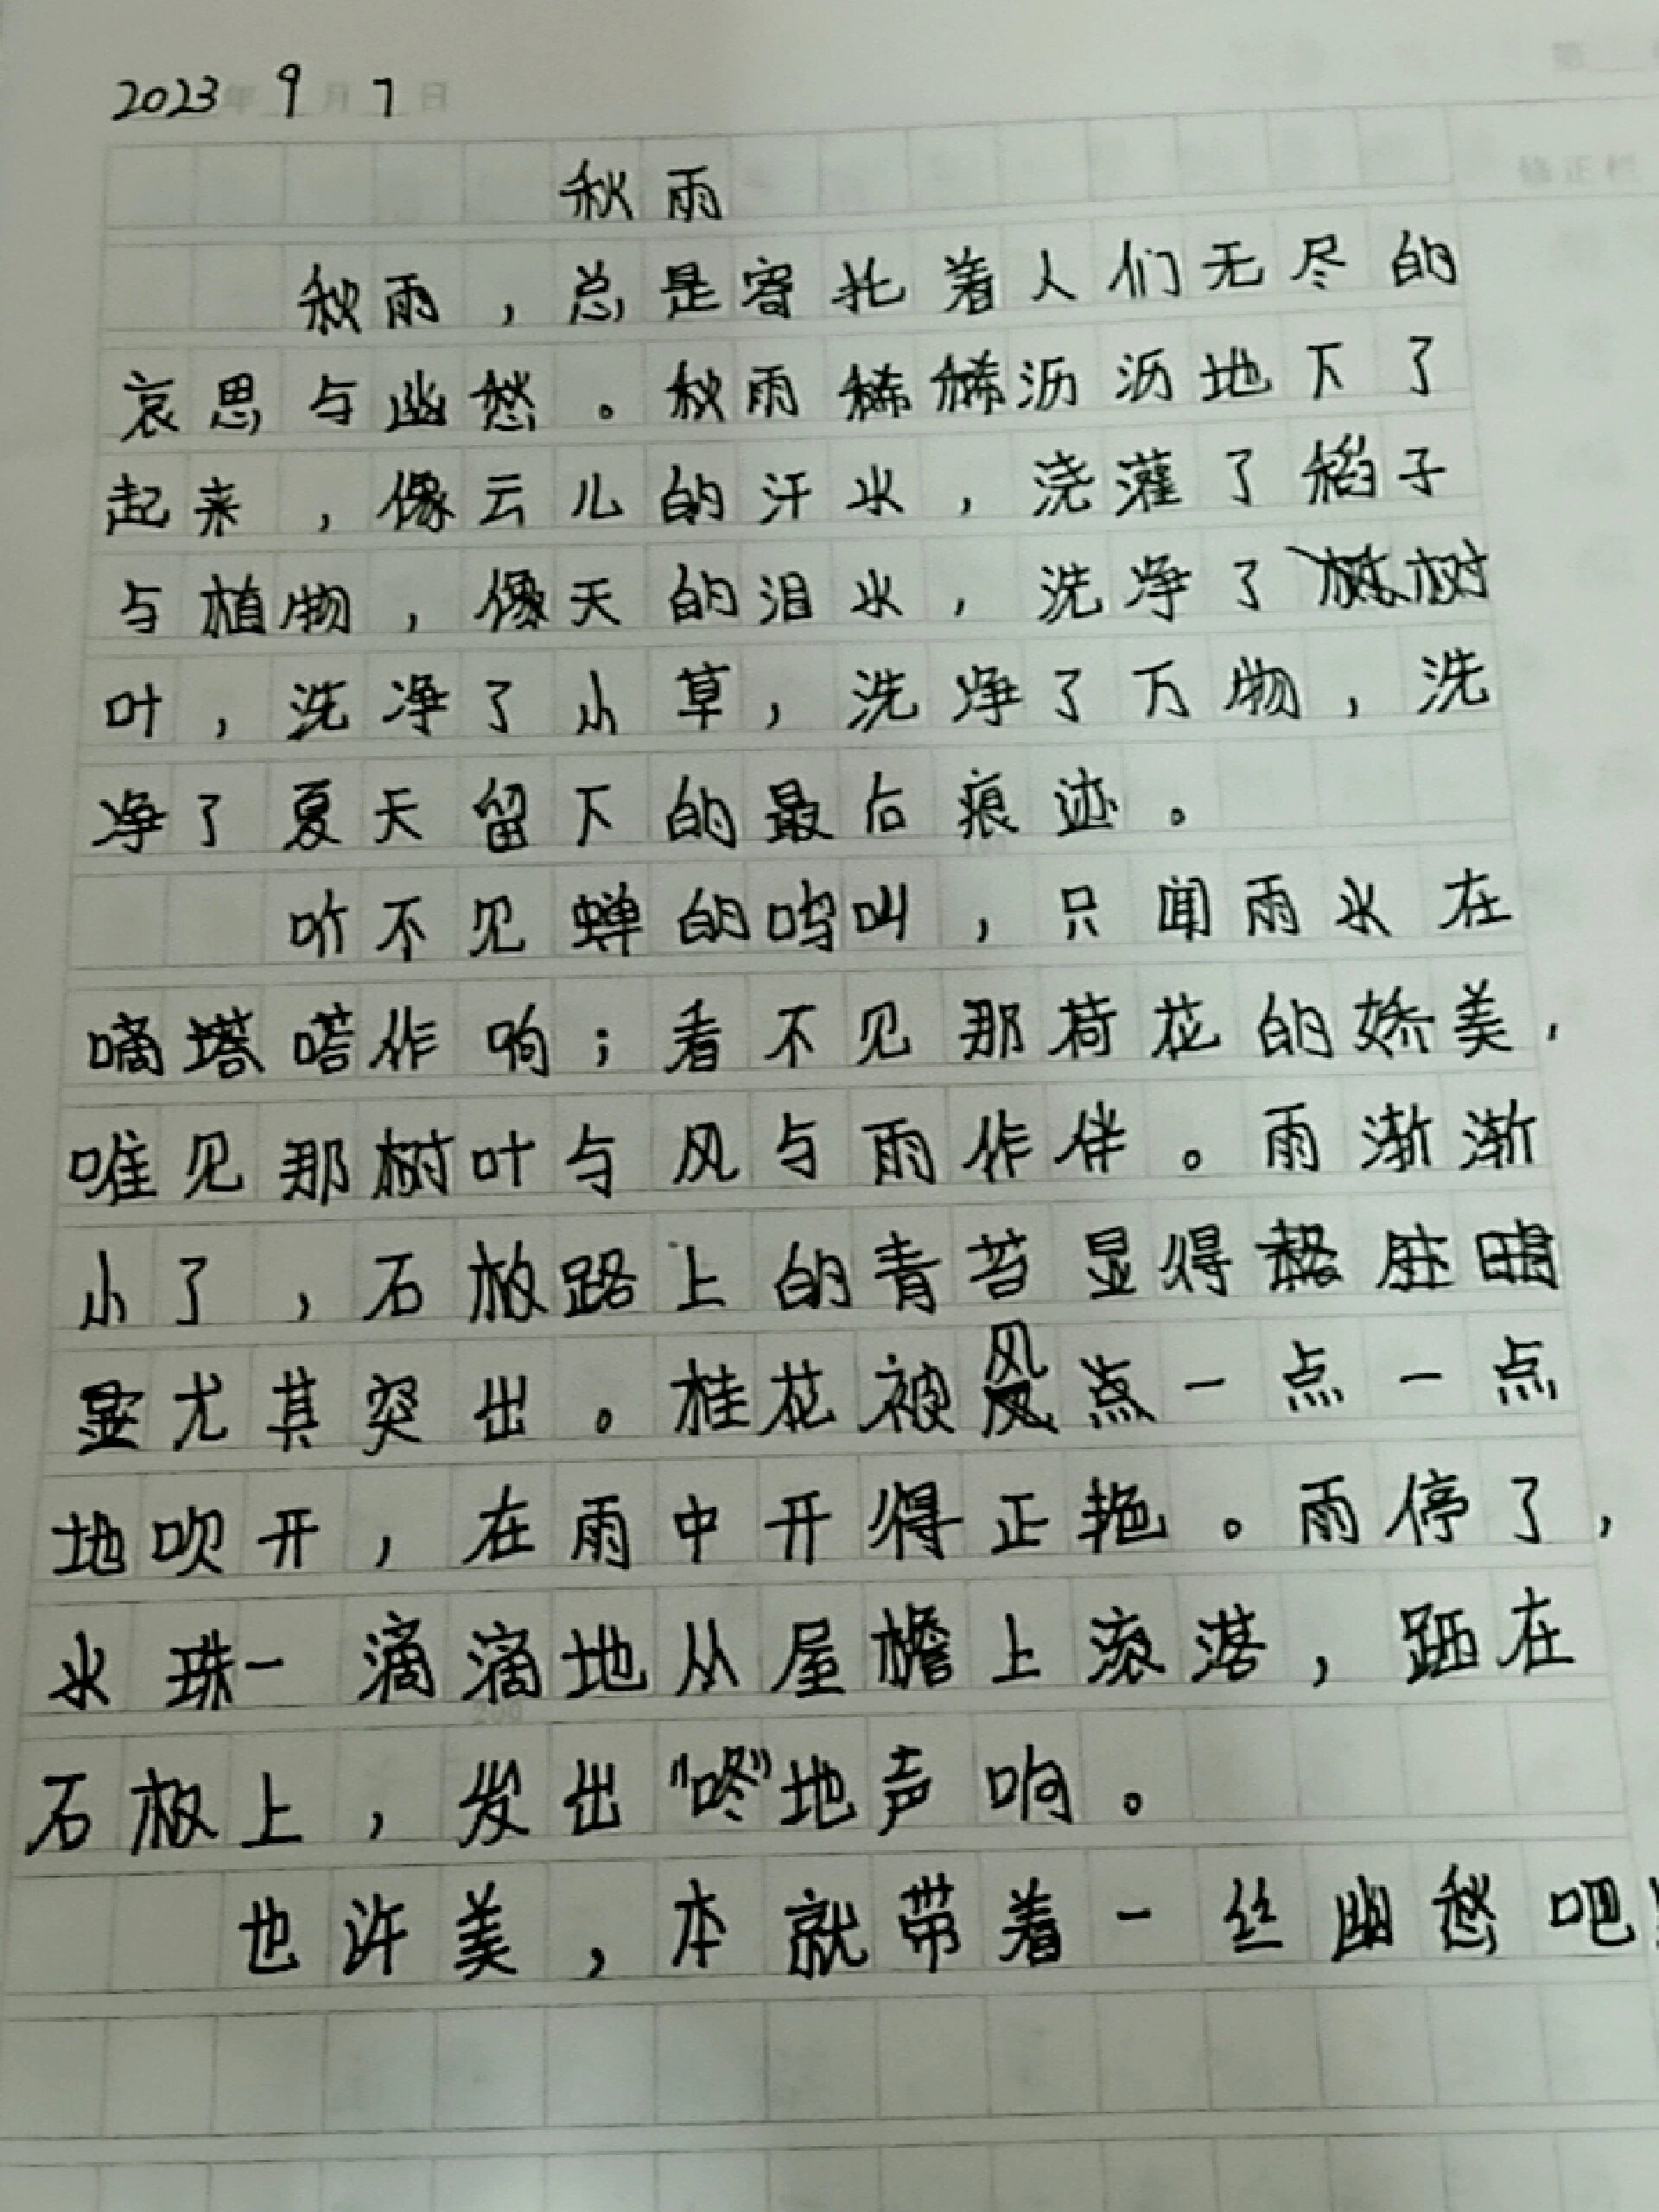 2023年9月7日
第
修正栏
秋雨
秋雨，总是寄托着人们无尽的
哀思与幽愁。秋雨稀稀沥沥地下了
起来，像云儿的汗水，浇灌了稻子
与植物，像天的泪水，洗净了树
叶，洗净了小草，洗净了万物，洗
净了夏天留下的最后痕迹。
听不见蝉的鸣叫，只闻雨水在
嘀塔嗒作响；看不见那荷花的娇美，
唯见那树叶与风与雨作伴。雨渐渐
小了，石板路上的青苔显得
尤其突出。桂花被风点一点一点
地吹开，在雨中开得正艳。雨停了，
水珠一滴滴地从屋檐上滚落，洒在
石板上，发出"咚"地声响。
200
也许美，本就带着一丝幽愁吧！